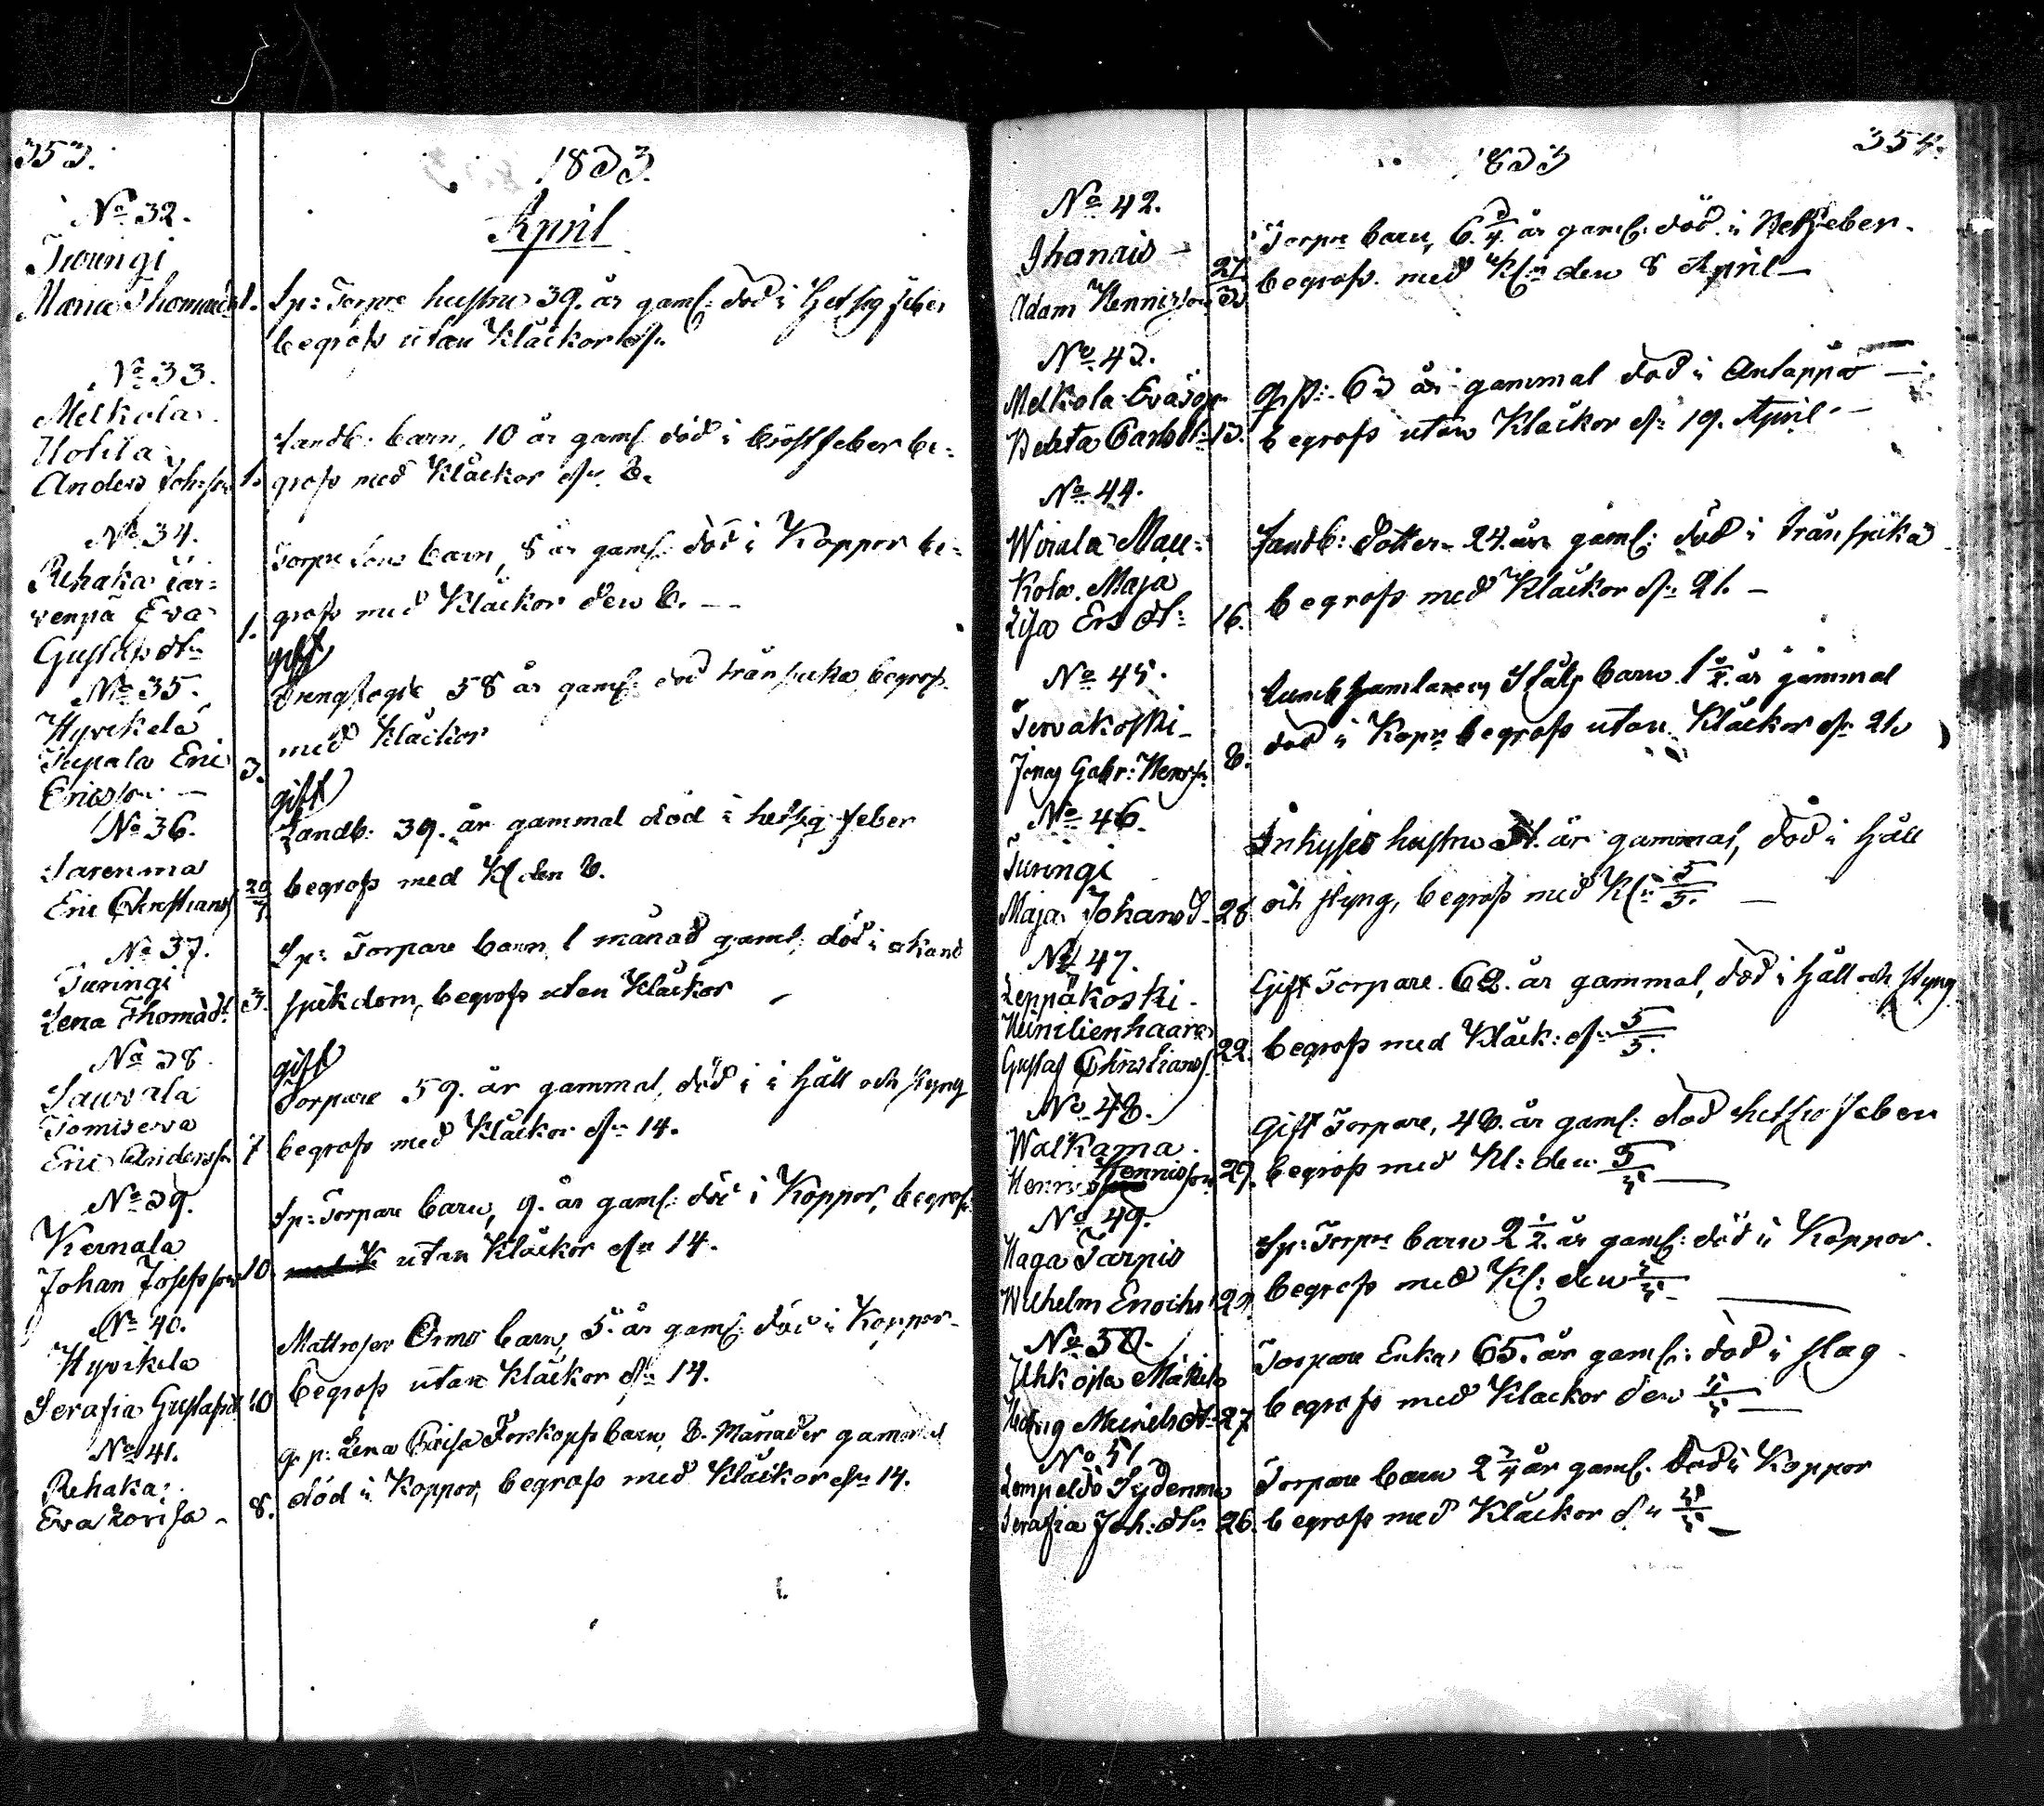 353.
1833.
April
No 32.
Turingi
Maria Thomaed. 1. Sp: Torpre hustru 39. år gaml: död i Hetsig feber
begrofs utan Klåckor
No 33.
Melkola
Uotila
Anders Johsson 1. Landb: barn, 10 år gaml död i Bröstfeber be-
grofs med Klåckor dn 8.
No 34.
Rehaka Jär-
venpä Eva
Gustafs dtr 1. Torpre Sons barn, 8 år gaml. död i Koppor be-
grofs med Klåckor den 8.
No 35.
Hyvikelä
Sepala Eric
Ericsson 3. gift
58 år gaml. död trånsuka begrofs.
med Klåckor
No 36.
Sarenmaa
Eric Christians 29/3. gift
Landb: 39. år gammal död i hetsig feber
begrofs med Kl den 8.
No 37.
Turingi
Lena Thomaedt. 3. Sp: Torpare barn 1 månad gaml. död i okänd
sjukdom, begrofs utan Klåckor
No 38.
Sauvala
Tomiseva
Eric Andersson 7 gift
Torpare 59. år gammal, död i i håll och styng
begrofs med Klåckor dn 14.
No 39.
Kernala
Johan Josefsson 10. Sp: Torpare barn, 9. år gaml. död i Koppor, begrofs
med K utan Klåckor dn 14.
No 40.
Hyvikela
Serafia Gustafsd 10 Mattroser Örns barn, 5. år gaml. död i Koppor
begrofs utan Klåckor dn 14.
No 41.
Rehaka
Eva Lovisa 8. Lena barn, 8. Månader gammal
död i Koppor, begrofs med Klåckor dn 14.
354.
1833
No 42.
Ihanais
Adam Hennisson 27/3 Torpre barn, 6 3/4 år gaml. död i Hetsfeber.
begrofs. med Kl:r den 8 April
No 43.
Melkola
Beata Carlsdt: 13. 63 år gammal död i
begrofs utan Klåckor dn 19. April
No 44.
Wirala Mau-
kola. Maja
Lisa Ers dt: 16. Landb: dotter 24. år gaml: död i trånsjuka
begrofs med Klåckor dn 21.
No 45.
Tervakoski
Jonas Gabr: Henrss. 8. Ståls barn 1 1/2 år gammal
död i Kopr begrofs utan Klåckor dn 21
No 46.
Turingi
Maja Johansd. 28 Inhyses hustru år gammal, död i håll
och styng, begrofs med Kl:r 5/5.
No 47.
Leppäkoski
Heinilienhaara
Gustaf Christians. 22. Gift Torpare. 62. år gammal, död i håll och styng
begrofs med Klåck: dn 5/5.
No 48.
Walkama
Henric Hennisson 29. Gift Torpare, 48. år gaml: död hetsig feber
begrofs med Kl: den 5/5
No 49.
Haga Jarpis
Wilhelm Enochs 29. Sp: Torpre barn 2 1/2 år gaml: död i Koppor.
begrofs med Kl: den 5/5
No 50.
Uhkoila Mäkelä
Hedvig dt: 27. Torpare Enka 65. år gaml: död i slag
begrofs med Klåckor den
No 51
Sydenma
Serafia Joh: dtr 26. Torpare barn 2 3/4 år gaml. död i Koppor
begrofs med Klåckor dn